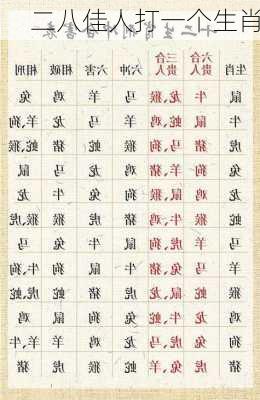 二八佳人打一个生肖
十二生肖
生肖 六合贵人 三合贵人 六冲 六害 相破 相刑
鼠 牛 龙,猴 马 羊 鸡 兔
牛 鼠 蛇,鸡 羊 马 龙 羊,狗
虎 猪 马,狗 猴 蛇 猪 蛇,猴
兔 狗 羊,猪 鸡 龙 马 鼠
龙 鸡 鼠,猴 狗 兔 牛 龙
蛇 猴 牛,鸡 猪 虎 猴 猴,虎
马 羊 虎,狗 鼠 牛 兔 马
羊 马 兔,猪 牛 鼠 狗 狗,牛
猴 蛇 鼠,龙 虎 猪 蛇 虎,蛇
鸡 龙 牛,蛇 兔 狗 鼠 鸡
狗 兔 虎,马 龙 鸡 羊 羊,牛
猪 虎 兔,羊 蛇 猴 虎 猪